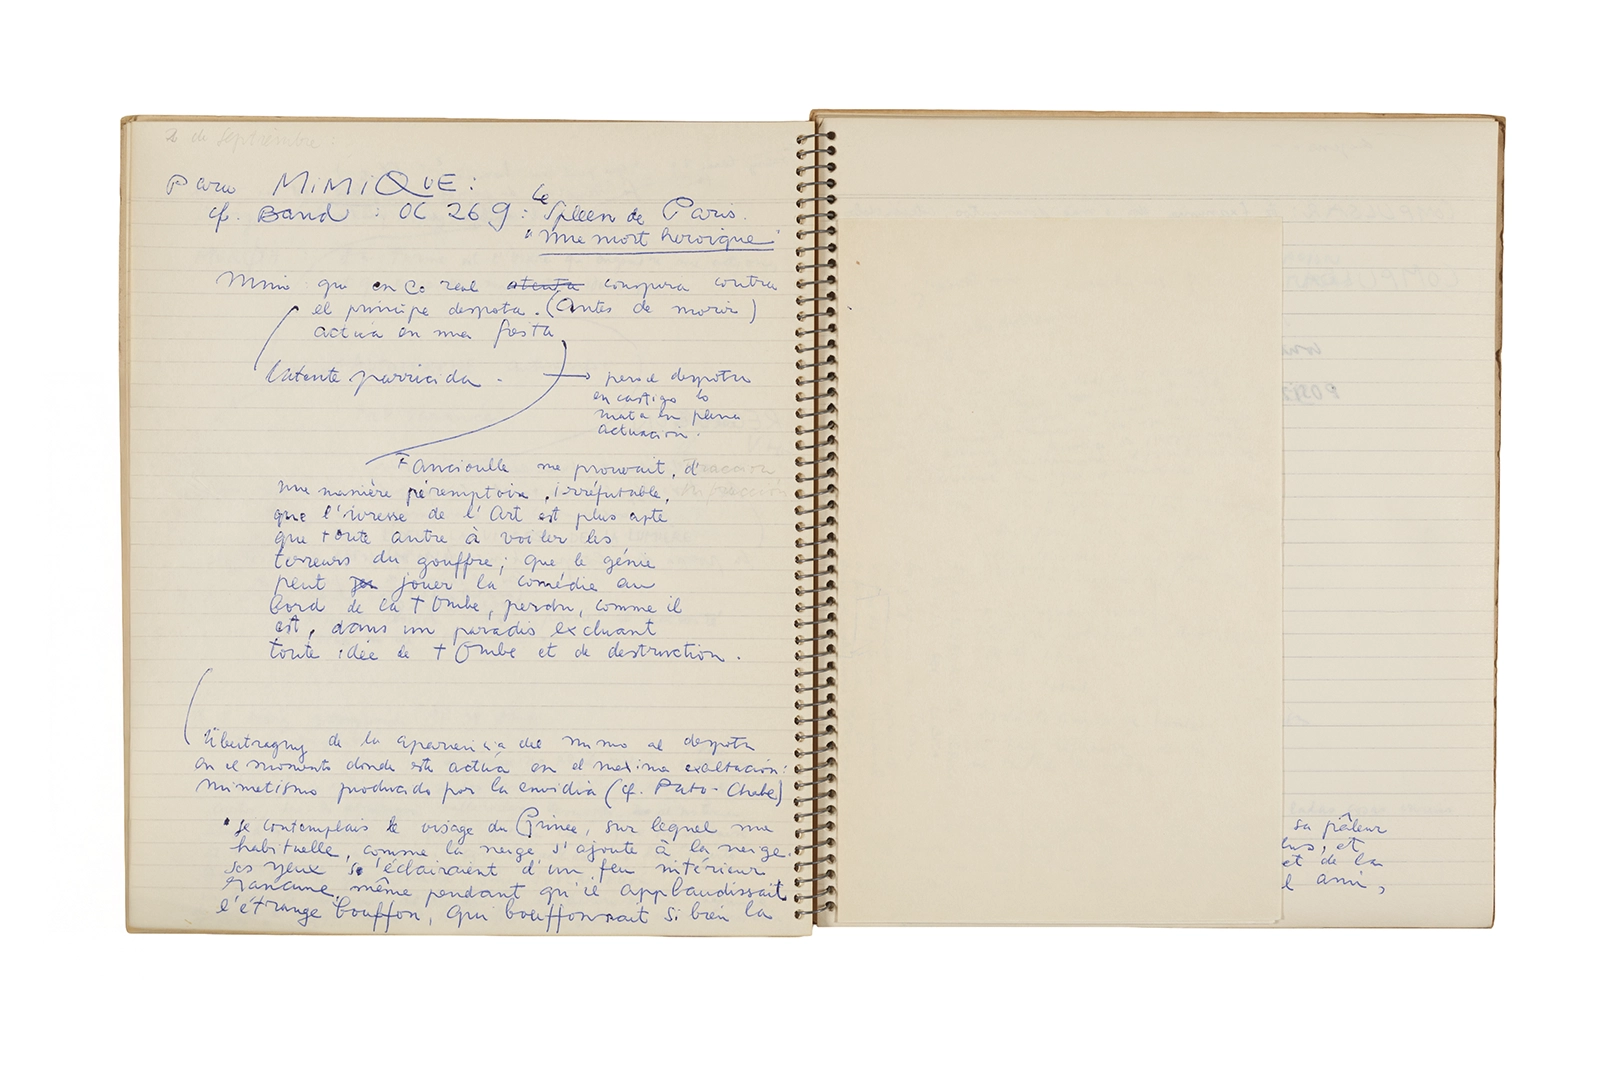 2 de Septiembre:
para MiMiQUE:
cf. Baud : OC 269: Le Spleen de Paris.
"Une mort heroïque"
Mimo que en co real atenta conspira contra
el principe despota. (Antes de morir)
actúa en una fiesta
latente parricida. → pero el despota
en castigo lo
mata en plena
actuación.
Fancioulle me prouvait, d'
une manière péremptoire, irréfutable,
que l'ivresse de l'Art est plus apte
que toute autre à voiler les
terreurs du gouffre; que le génie
peut jouer la comédie au
bord de la tombe, perdu, comme il
est, dans un paradis excluant
toute idée de tombe et de destruction.
Übertragung de la apariencia del mimo al despota
en el momento donde este actúa en el maxima exaltación:
mimetismo producido por la envidia (cf. Pato-
"je contemplais le visage du Prince, sur lequel une
habituelle, comme la neige s'ajoute à la neige.
ses yeux s'éclairaient d'un feu intérieur
rancune, même pendant qu'il applaudissait
l'étrange bouffon, qui bouffonnait si bien la
sa pâleur
et
et de la
ami,